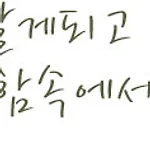 게되고
함속에서